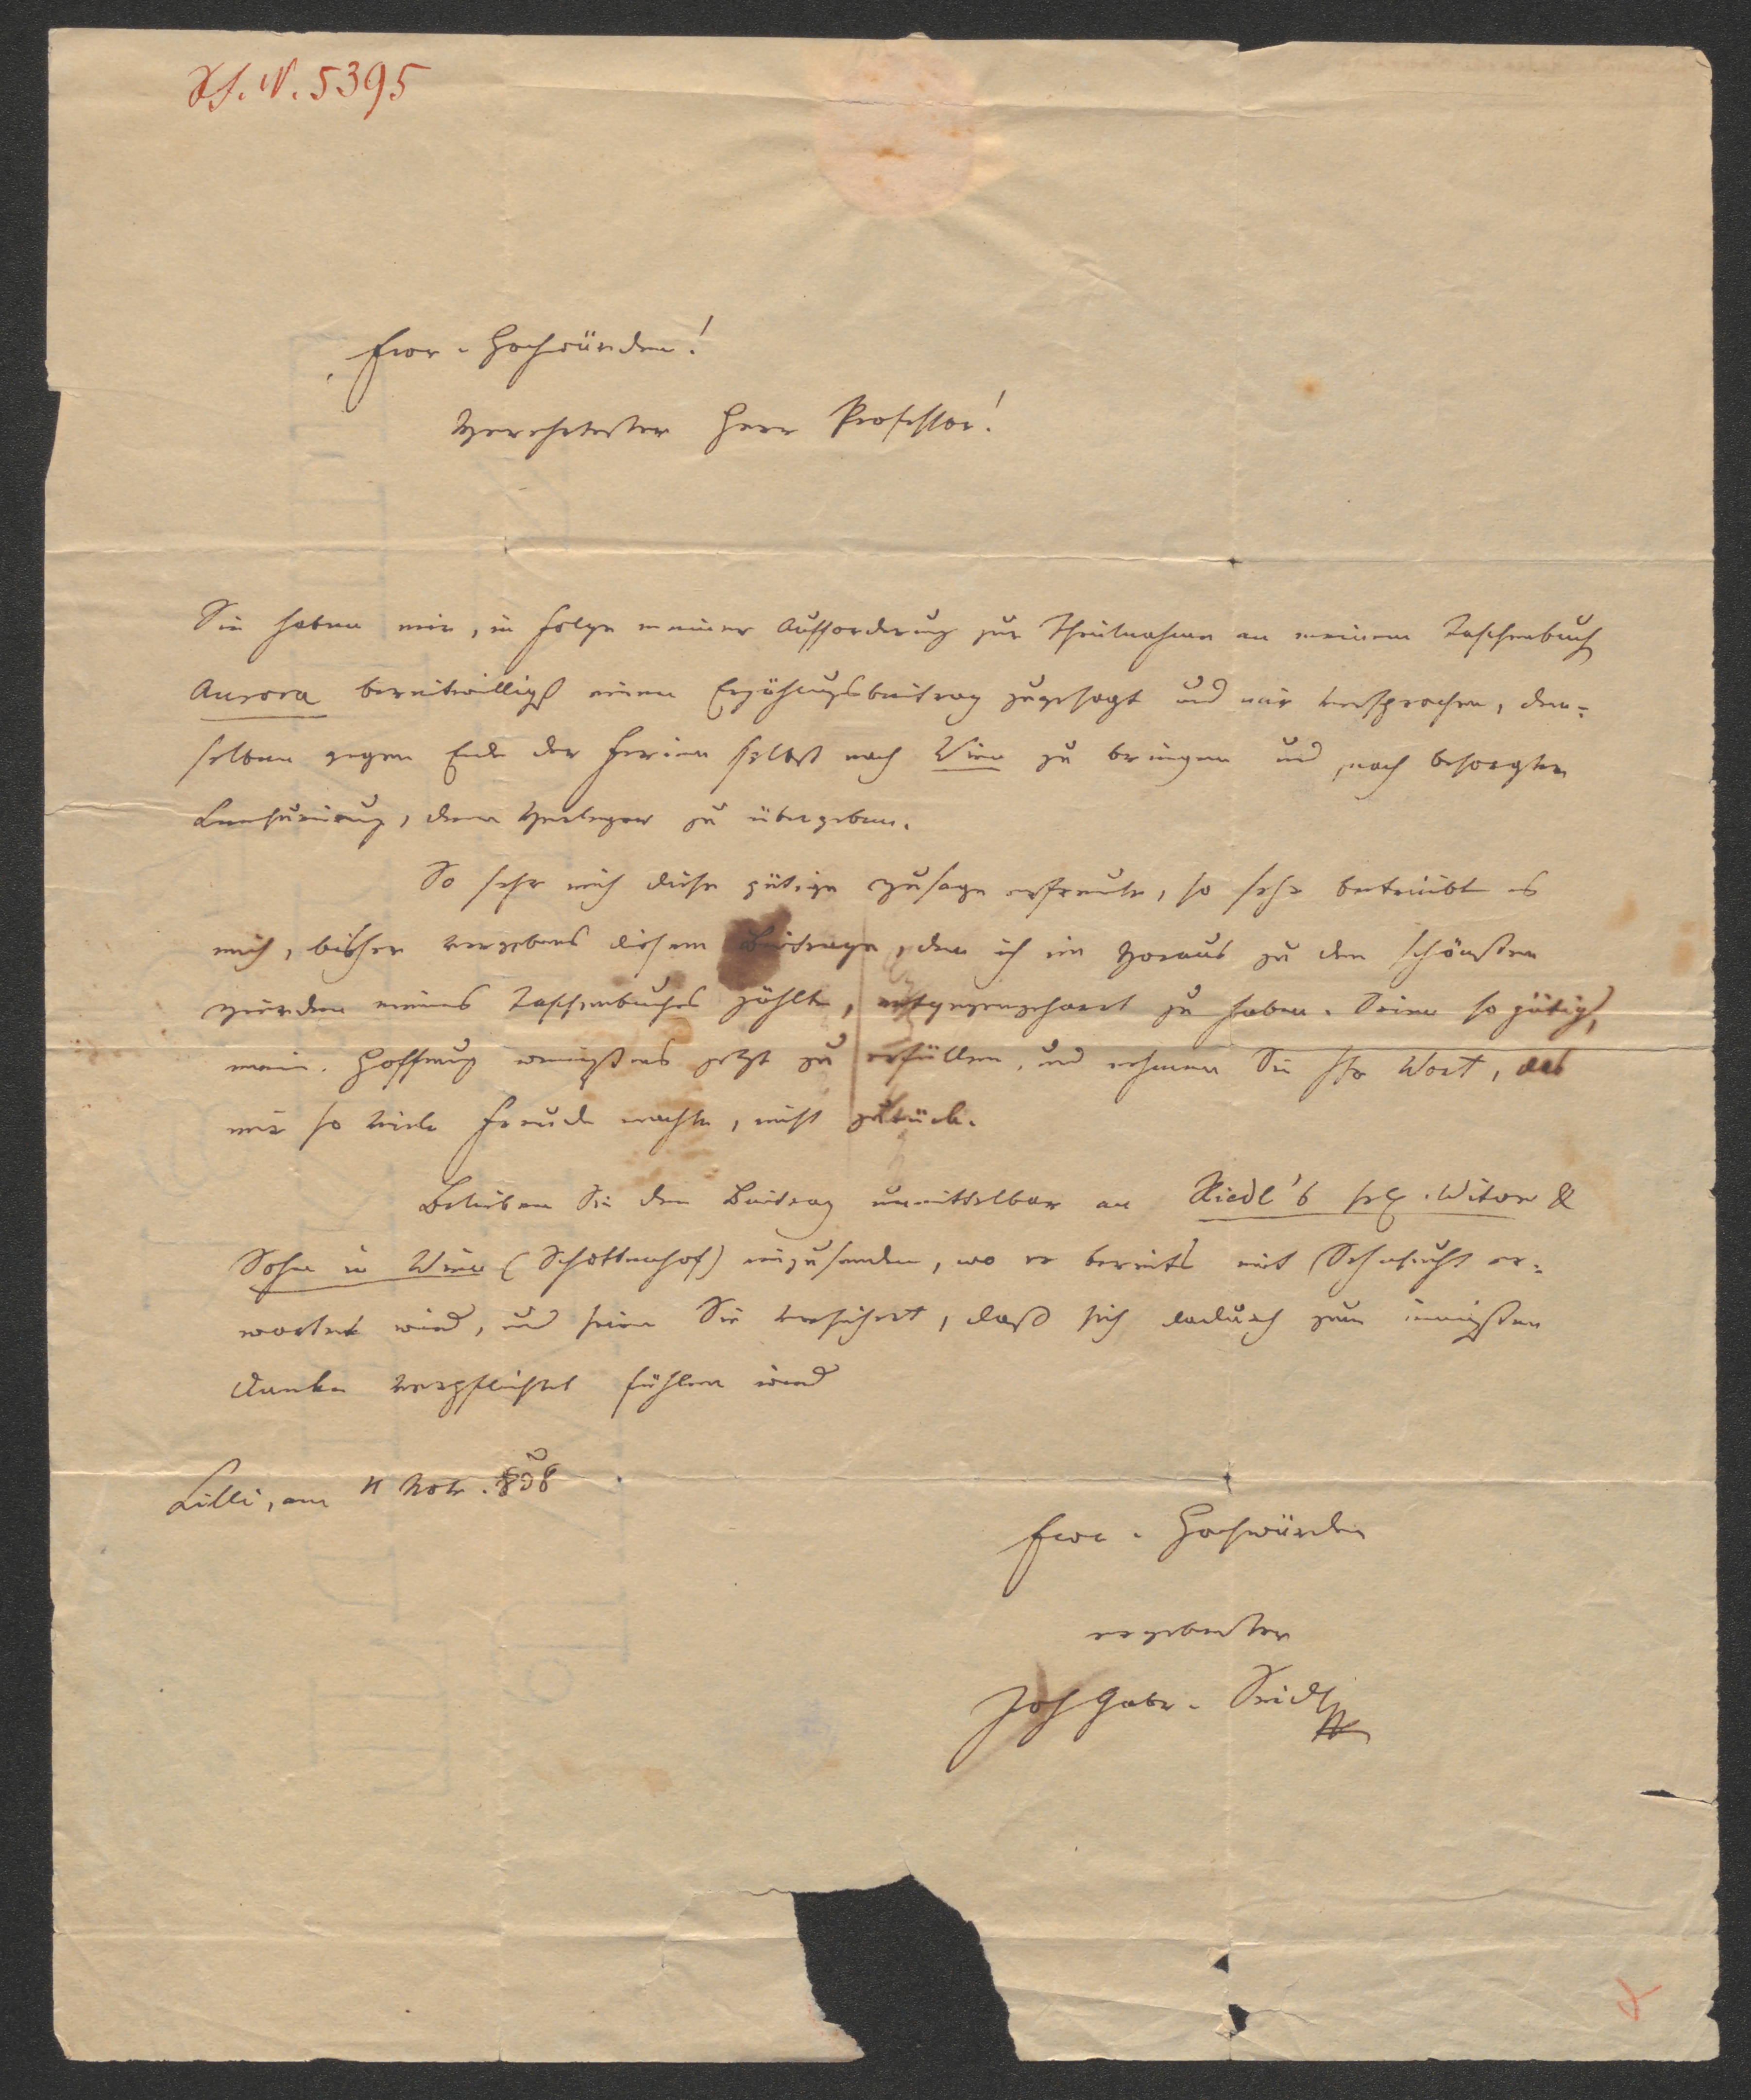 H.I.N. 5395
Euer Hochwürden!
Verehrtester Herr Professor!
Sie haben mir, in Folge meiner Aufforderung zur Theilnahme an meinem Taschenbuch
Aurora bereitwilligst einen Erzählungsbeitrag zugesagt und mir versprochen, den-
selben gegen Ende der Ferien selbst nach Wien zu bringen und, nach besorgter
Censurirung, dem Verleger zu übergeben.
So sehr mich diese gütige Zusage erfreute, so sehr betrübt es
mich, bisher vergebens diesem Beitrage, den ich im Voraus zu den schönsten
Zierden meines Taschenbuches zählte, entgegengeharrt zu haben. Seien so gütig,
mein. Hoffnung wenigstens jetzt zu erfüllen, und nehmen Sie Ihr Wort, das
mir so viele Freude machte, nicht zurück.
Belieben Sie den Beitrag unmittelbar an Riedl's sel. Witwe &
Sohn in Wien (Schottenhof) einzusenden, wo er bereits mit Sehnsucht er-
wartet wird, und seien Sie versichert, daß sich dadurch zum innigsten
Danke verpflichtet fühlen wird
Cilli, am 11 Nov. 838
Euer Hochwürden
ergebenster
Joh Gabr. Seidl